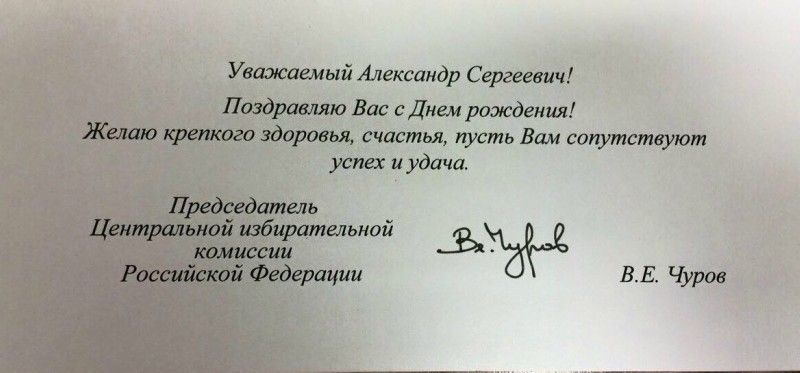 Уважаемый Александр Сергеевич!
Поздравляю Вас с Днем рождения!
Желаю крепкого здоровья, счастья, пусть Вам сопутствуют
успех и удача.
Председатель
Центральной избирательной
комиссии
Российской Федерации
Вл. Чуров
В.Е. Чуров